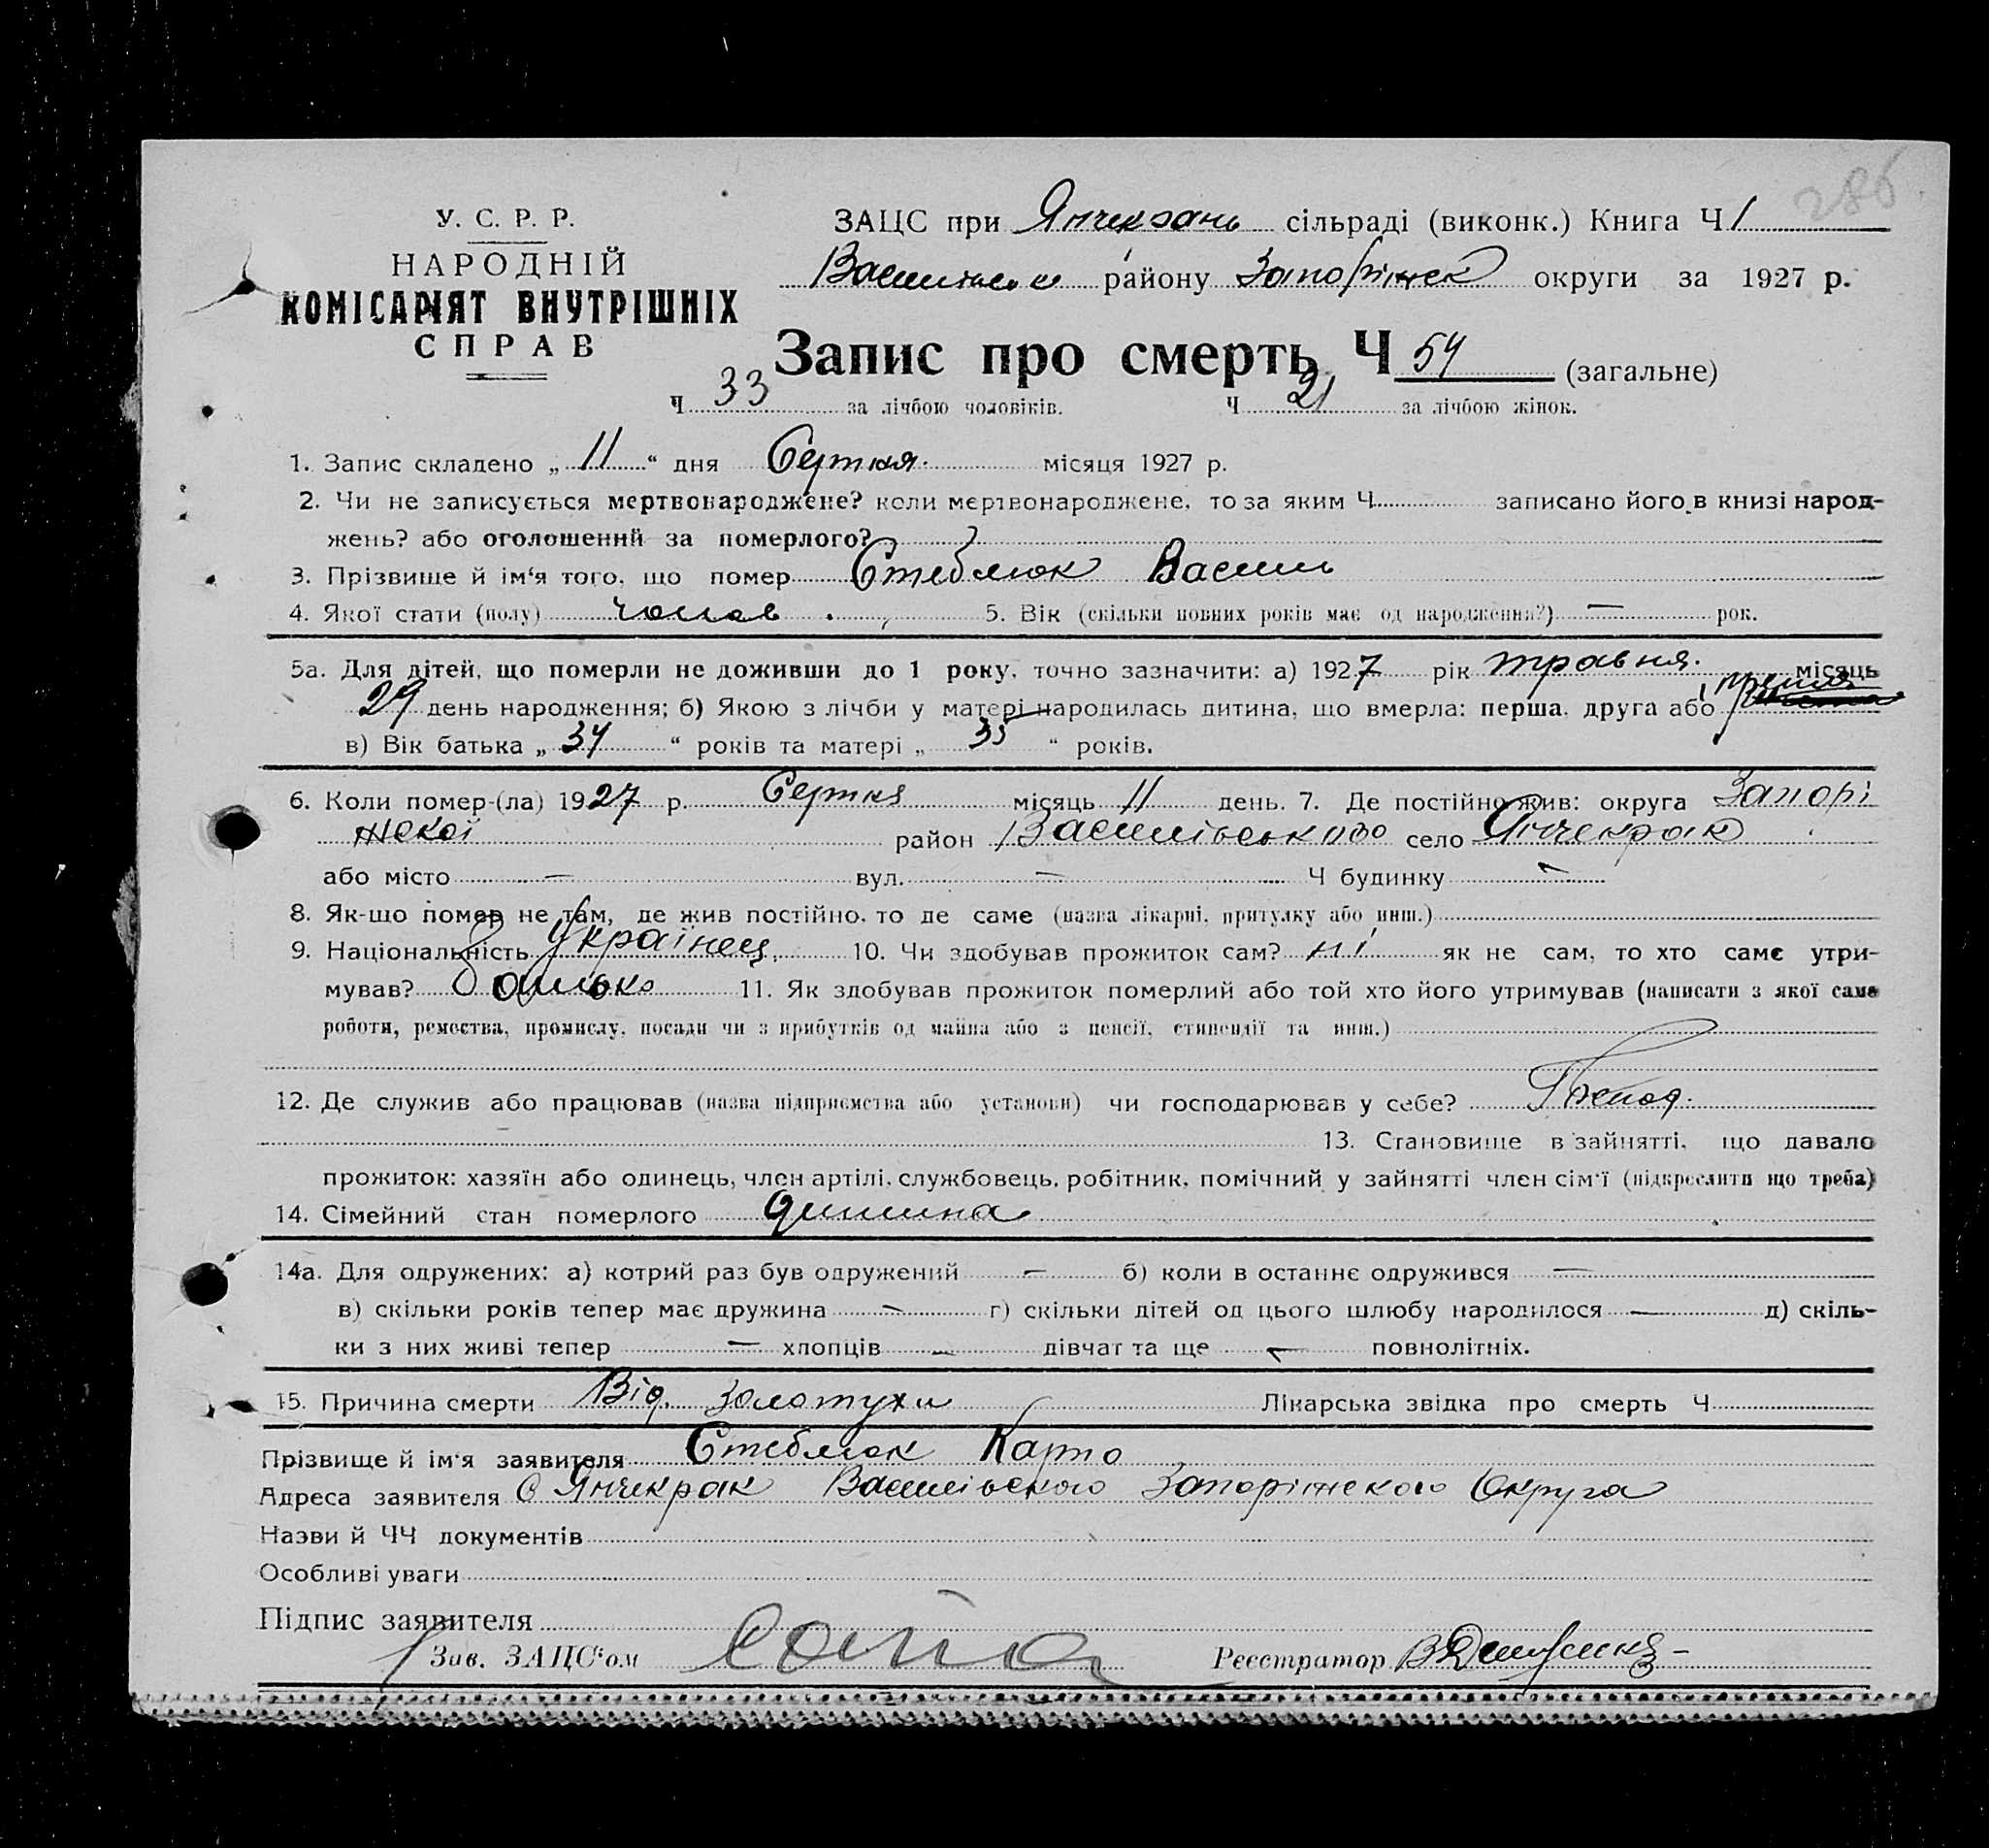 286
У. С. Р. Р.
НАРОДНІЙ
КОМІСАРІЯТ ВНУТРІШНІХ
СПРАВ
ЗАЦС при сільраді (виконк.) Книга Ч 1
району Запоріжск округи за 1927 р.
Запис про смерть Ч 54 (загальне)
Ч 33 за лічбою чоловіків. Ч 21 за лічбою жінок.
1. Запис складено „ 11 “ дня Серпня місяця 1927 р.
2. Чи не записується мертвонароджене? коли мертвонароджене, то за яким Ч записано його в книзі народ-
жень? або оголошений за померлого?
3. Прізвище й ім‘я того, що помер Стеблюк Василь
4. Якої стати (полу) чолов 5. Вік (скільки повних років має од народження?) — рок.
5а. Для дітей, що померли не доживши до 1 року, точно зазначити: а) 1927 рік травня. місяць
29 день народження; б) Якою з лічби у матері народилась дитина, що вмерла: перша, друга або
в) Вік батька „ 34 “ років та матері „ 35 “ років.
6. Коли помер-(ла) 1927 р. Серпня місяць 11 день. 7. Де постійно жив: округа Запорі
жскої район Василівського село Янчекрак
або місто — вул. — Ч будинку —
8. Як-що помер не там, де жив постійно, то де саме (назва лікарні, притулку або инш.)
9. Національність Українец. 10. Чи здобував прожиток сам? ні як не сам, то хто саме утри-
мував? батько 11. Як здобував прожиток померлий або той хто його утримував (написати з якої саме
роботи, ремества, промислу, посади чи з прибутків од майна або з пенсії, стипендії та инш.)
12. Де служив або працював (назва підприємства або установи) чи господарював у себе? Господ.
13. Становище в зайнятті, що давало
прожиток: хазяїн або одинець, член артілі, службовець, робітник, помічний у зайнятті член сім‘ї (підкреслити що треба)
14. Сімейний стан померлого дитина
14а. Для одружених: а) котрий раз був одружений — б) коли в останнє одружився —
в) скільки років тепер має дружина — г) скільки дітей од цього шлюбу народилося — д) скіль-
ки з них живі тепер — хлопців — дівчат та ще — повнолітніх.
15. Причина смерти Від. золотухи Лікарська звідка про смерть Ч
Прізвище й ім‘я заявителя Стеблюк Карпо
Адреса заявителя С Янчекрак Василівського Запоріжского Округа
Назви й ЧЧ документів
Особливі уваги
Підпис заявителя
Зав. ЗАЦС‘ом
Реєстратор